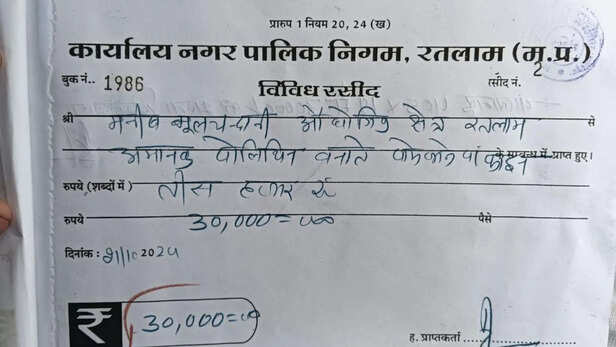 प्रारुप 1 नियम 20, 24 (ख)
कार्यालय नगर पालिक निगम, रतलाम (म.प्र.)
बुक नं.. 1986 रसीद नं. 2
विविध रसीद
श्री मनीष मूलचन्दानी औद्योगिक क्षेत्र रतलाम से
अमानक पोलिथिन बनाते के सम्बन्ध में प्राप्त हुए।
रुपये (शब्दों में) तीस हजार रु
रुपये 30,000= पैसे
दिनांक : 2024
₹ 30,000=
ह. प्राप्तकर्ता